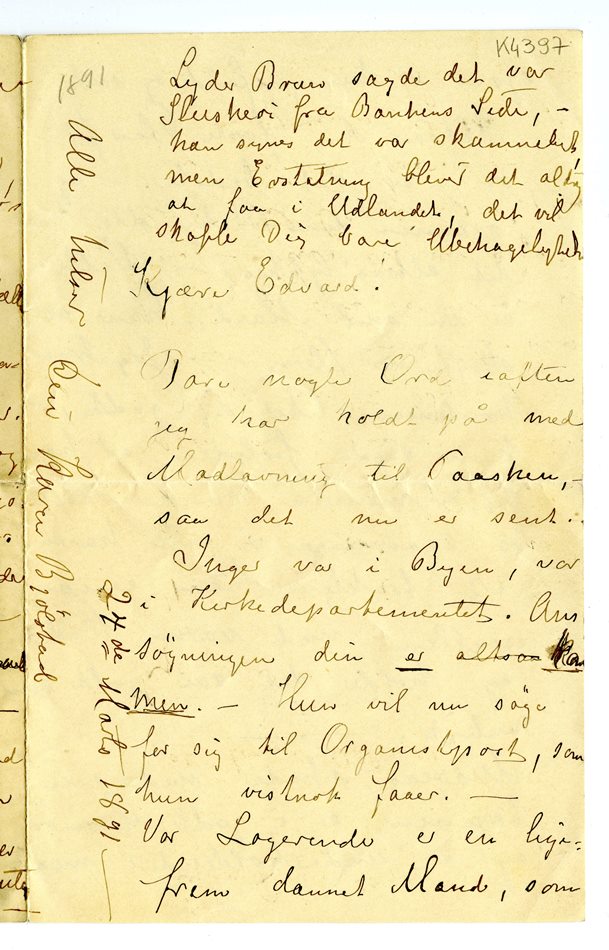 K4397
1891
Lyder Brun sagde det var
Sluskeri fra Bankens Side, –
han synes det var skammeligt,
men Erstatning bliver det aldrig
at faa i Udlandet, det vil
skaffe Dig bare Ubehageligheder
Kjære Edvard!
Bare nogle Ord iaften
jeg har holdt på med
Madlavning til Paasken, –
saa det nu er sent.
Inger var i Byen, var
i Kirkedepartementet. An
søgningen din er altsaa kom
men. – Hun vil nu søge
for sig til Organistpost, som
hun vistnok faaer. –
Vor Logerende er en lige-
frem dannet Mand, som
Alle hilser Din Karen Bjølstad
24de Marts 1891